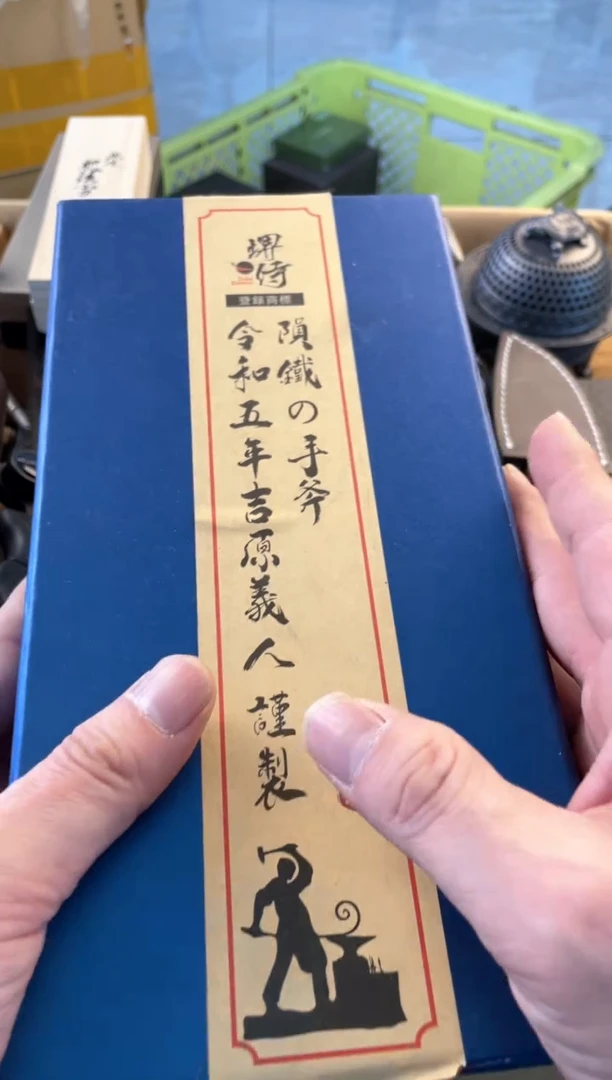 堺
侍
登録商標
隕鐵の手斧
令和五年吉原義人
謹製